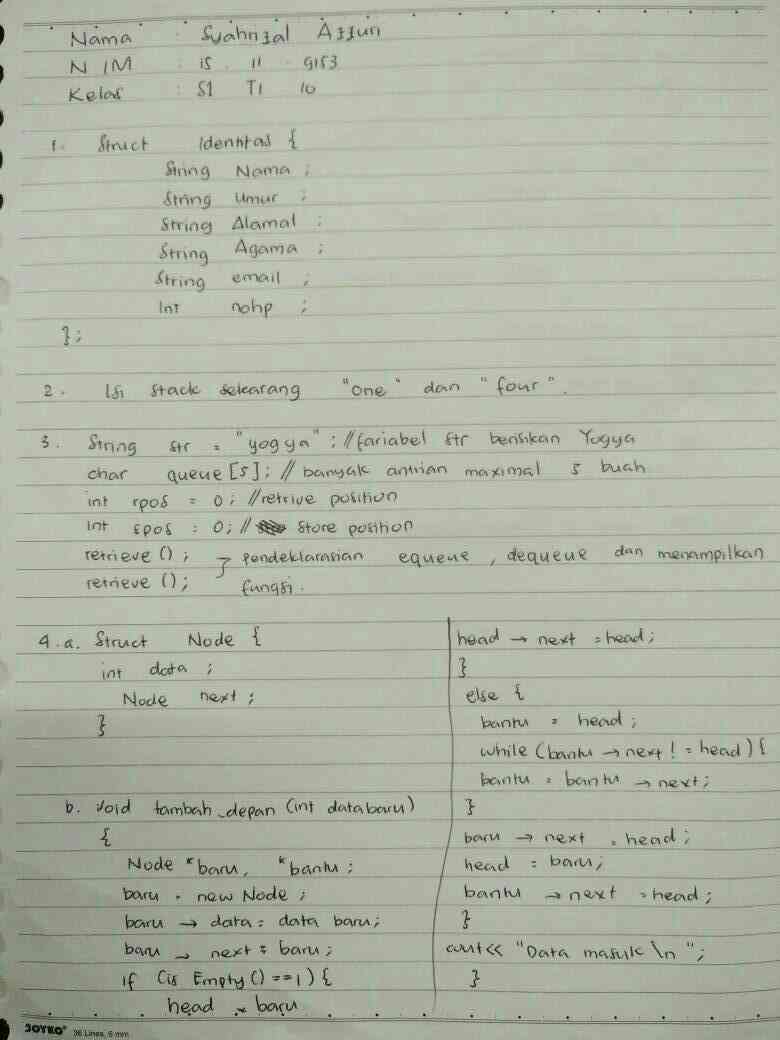 Nama : Syahrizal Azzuri
NIM : 15 . 11 . 9153
Kelas : S1 TI 10
1. Struct Identitas {
String Nama ;
String Umur ;
String Alamat ;
String Agama ;
String email ;
Int nohp ;
};
2. Isi stack sekarang "one" dan "four".
3. String str = "yogya" ; //fariabel str berisikan Yogya
char queue [5]; // banyak antrian maximal 5 buah
int rpos = 0 ; //retrive position
int spos = 0; // Store position
retrieve () ; } pendeklarasian equeue , dequeue dan menampilkan
retrieve (); fungsi.
4. a. Struct Node {
int data ;
Node next ;
}
b. void tambah_depan (int databaru)
{
Node *baru, *bantu ;
baru = new Node ;
baru → data = data baru;
baru → next = baru ;
if (is Empty () ==1) {
head = baru
head → next = head ;
}
else {
bantu = head ;
while (bantu → next != head) {
bantu = bantu → next;
}
baru → next = head ;
head = baru;
bantu → next = head ;
}
cout<< "Data masuk \n ";
}
JOYKO 36 Lines, 6 mm